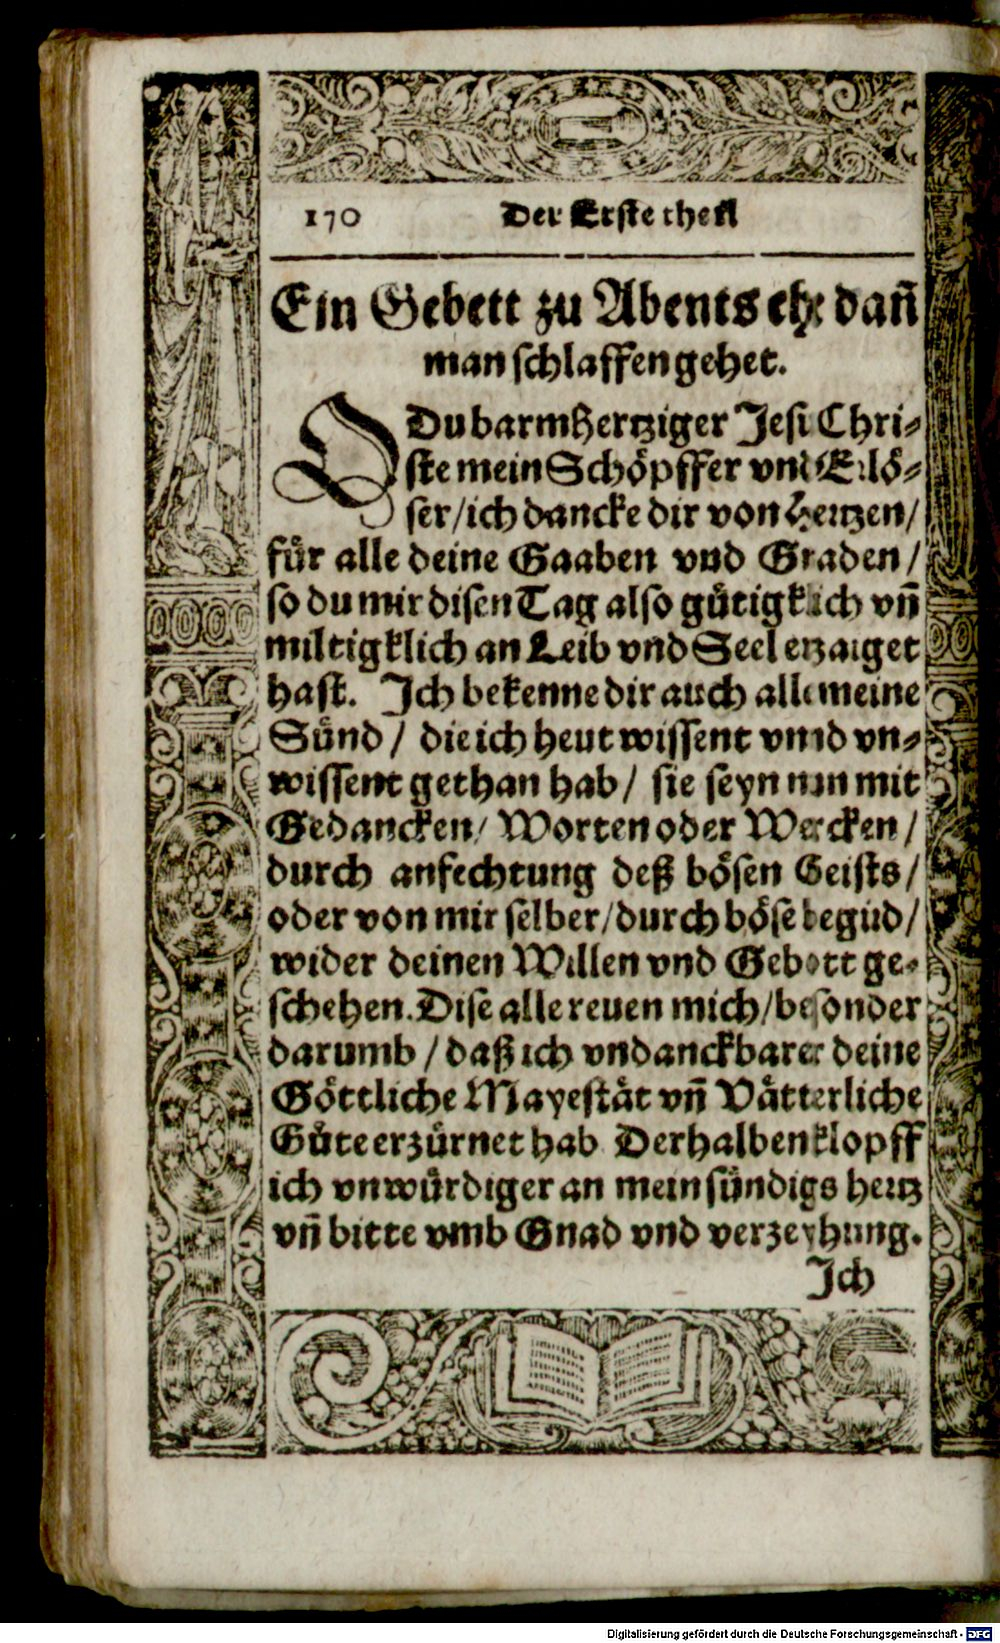 170 Der Erste theil
Ein Gebett zu Abents ehe dañ
man schlaffen gehet.
O Du barmhertziger Jesu Chri-
ste mein Schöpffer vnd Erlö-
ser/ ich dancke dir von hertzen/
für alle deine Gaaben vnd Gnaden/
so du mir disen Tag also gütigklich vñ
miltigklich an Leib vnd Seel erzaiget
hast. Ich bekenne dir auch alle meine
Sünd/ die ich heut wissent vnnd vn-
wissent gethan hab/ sie seyn nun mit
Gedancken/ Worten oder Wercken/
durch anfechtung deß bösen Geists/
oder von mir selber/ durch böse begird/
wider deinen Willen vnd Gebott ge-
schehen. Dise alle reuen mich/ besonder
darumb/ daß ich vndanckbarer deine
Göttliche Mayestät vñ Vätterliche
Güte erzürnet hab. Derhalben klopff
ich vnwürdiger an mein sündigs hertz
vñ bitte vmb Gnad vnd verzeyhung.
Ich
Digitalisierung gefördert durch die Deutsche Forschungsgemeinschaft - DFG